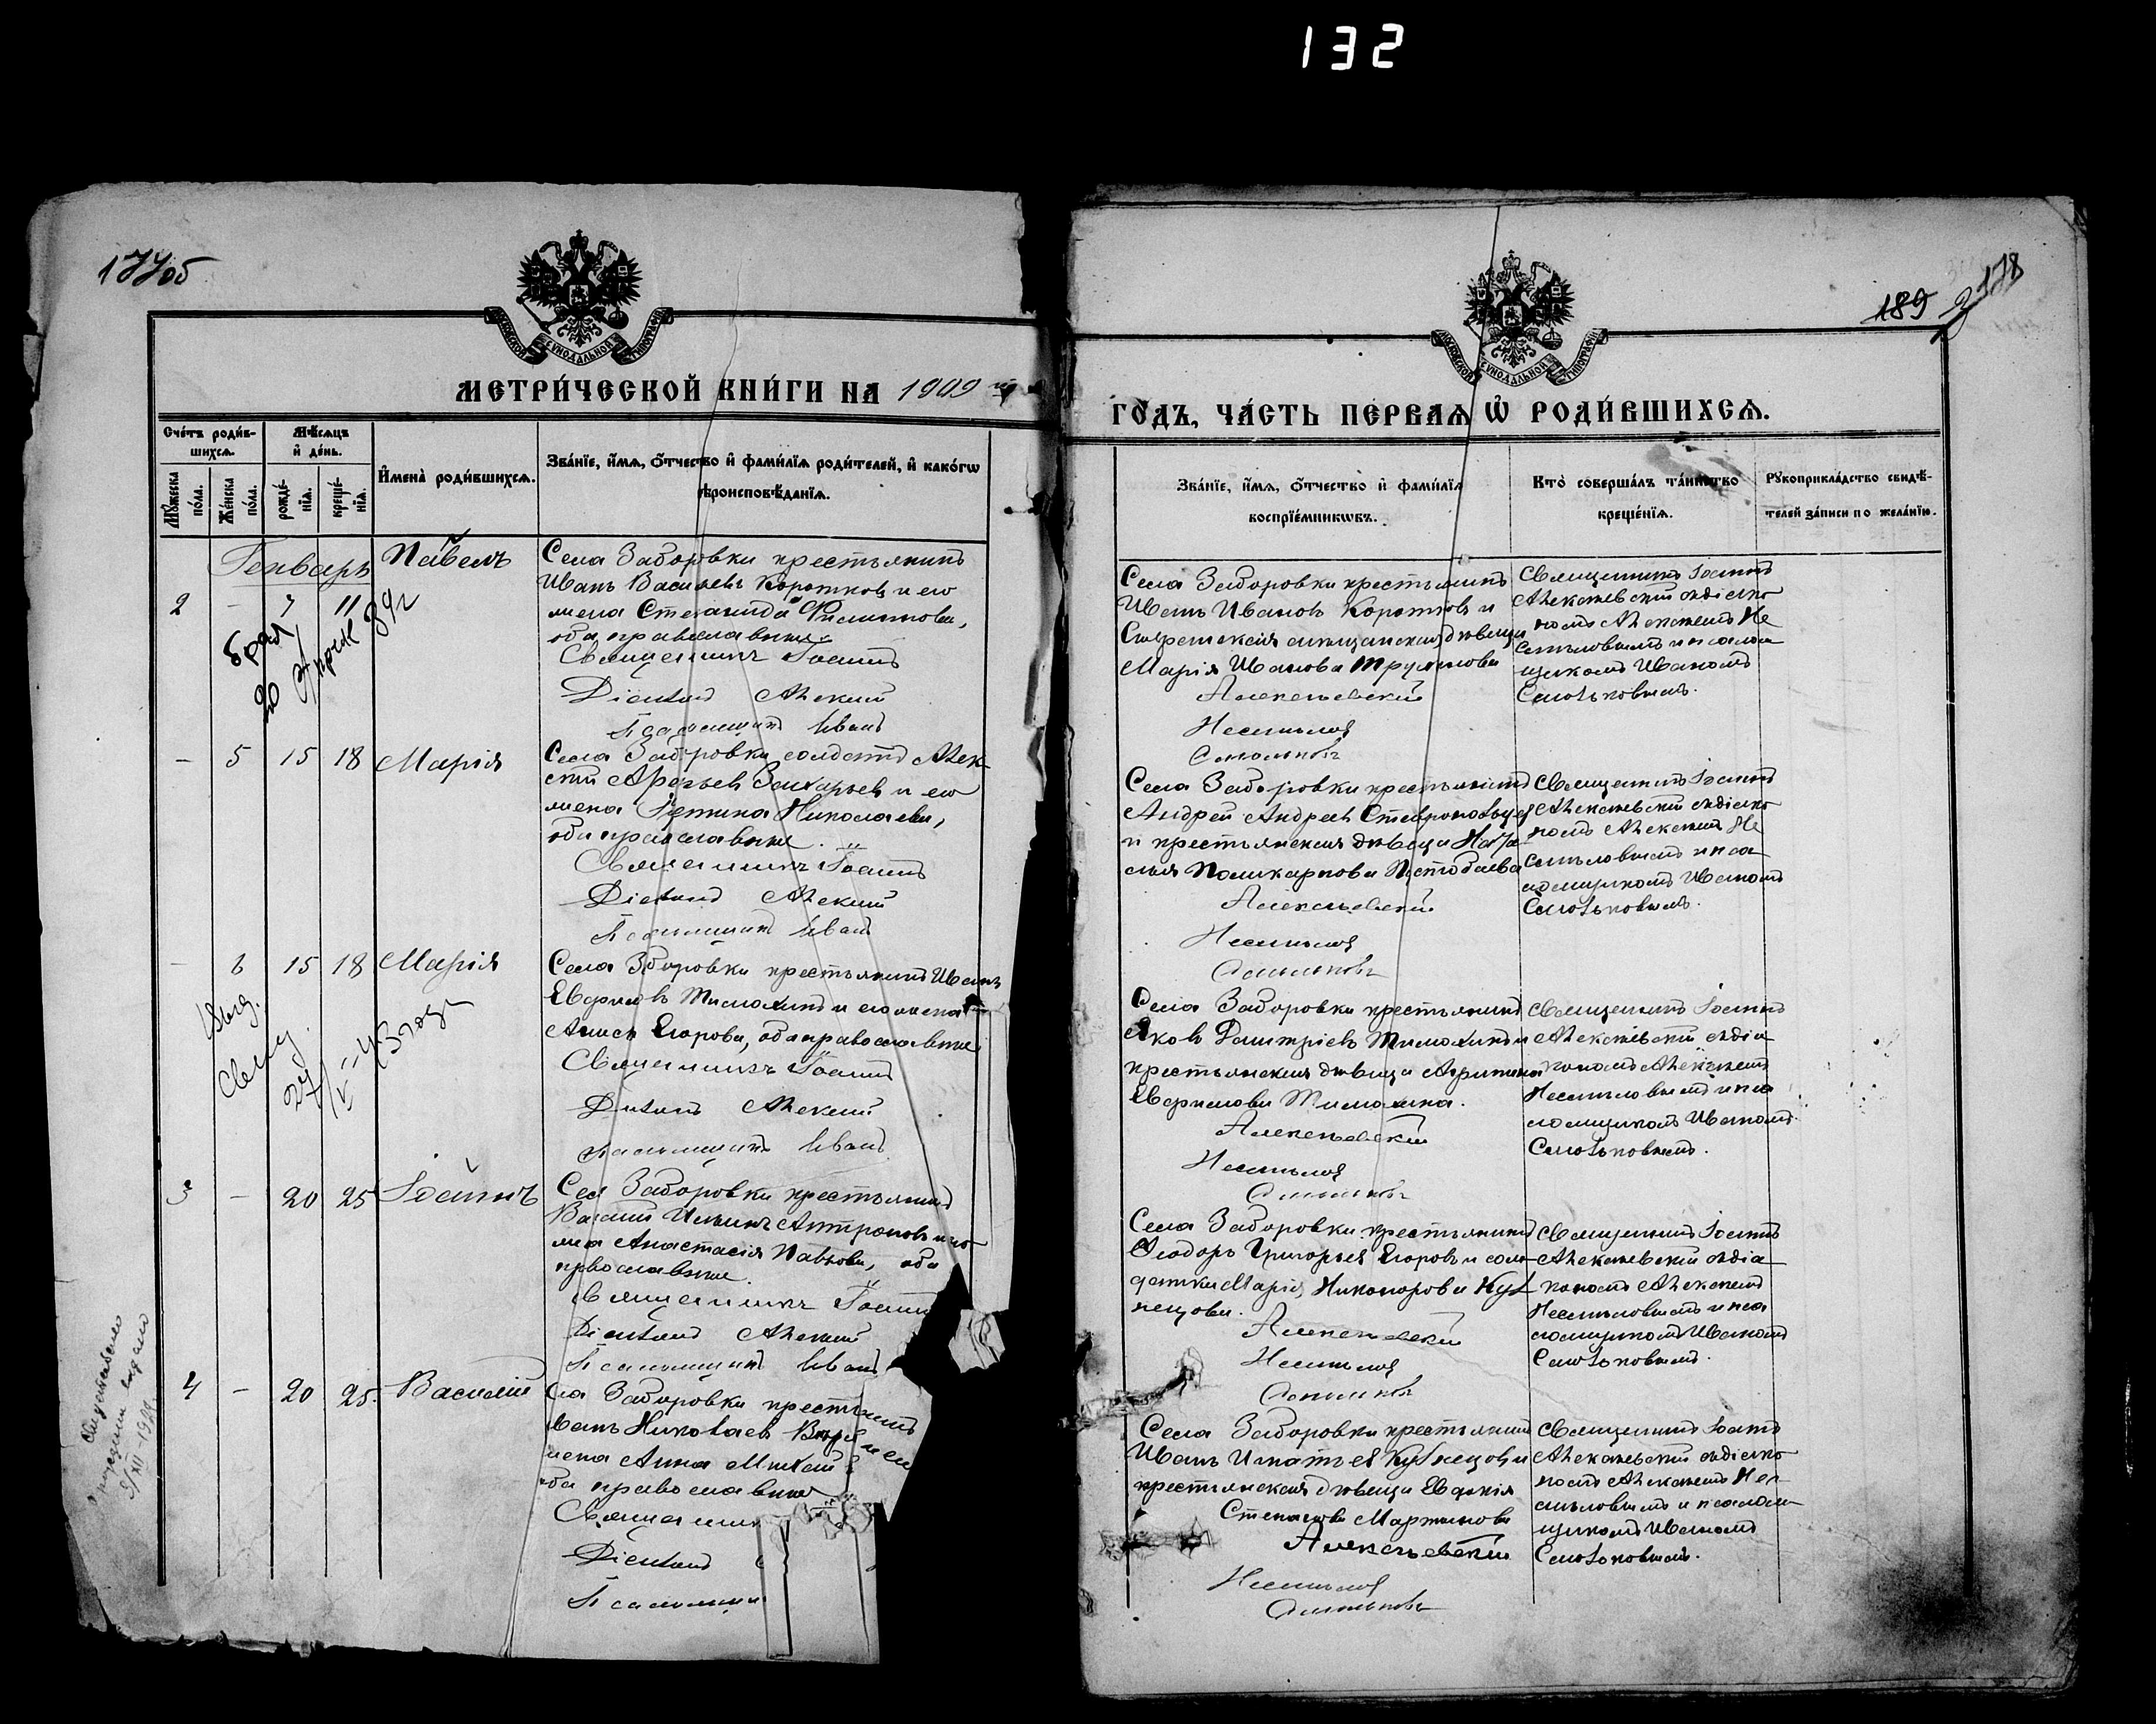 132
177об
189
178
МОСКОВСКОЙ СУНОДАЛЬНОЙ ТИПОГРАФІИ
МОСКОВСКОЙ СУНОДАЛЬНОЙ ТИПОГРАФІИ
МЕТРИ́ЧЕСКОЙ КНИ́ГИ НА 1909 й
ГОДЪ, ЧА́СТЬ ПЕ́РВАЯ Ѡ РОДИ́ВШИХСЯ.
Сче́тъ роди́в-
шихся.
Мѣ́сяцъ
и де́нь.
Мꙋ́жеска по́ла.
Же́нска по́ла.
рожде́-
нїя.
креще́-
нїя.
Имена̀ роди́вшихся.
Зва́нїе, и́мя, о́тчество и фами́лїя роди́телей, и како́гѡ
вѣроисповѣ́данїя.
Зва́нїе, и́мя, о́тчество и фами́лїя
воспрїе́мникѡвъ.
Кто̀ соверша́лъ та́инство
креще́нїя.
Рꙋкоприкла́дство свидѣ́-
телей за́писи по жела́нїю.
Генварь
2 - 7 11 Павелъ
Села Заборовки крестьянинъ
Иванъ Васильевъ Коротковъ и его
жена Степанида Филиппова,
оба православные.
Священникъ Іоаннъ
Діаконъ Алексий
Псаломщикъ Иванъ
Села Заборовки крестьянинъ
Иванъ Ивановъ Коротковъ и
девица
Марія Иванова
Алексеевский
Несмеловъ
Смольковъ
Священникъ Іоаннъ
Алексеевский съ діако-
номъ Алексиемъ Не
смеловымъ и псалом
щикомъ Иваномъ
Смольковымъ.
- 5 15 18 Марія
Села Заборовки солдатъ Алек-
сий Арефьевъ Захарьевъ и его
жена Николаева,
оба православные.
Священникъ Іоаннъ
Діаконъ Алексий
Псаломщикъ Иванъ
Села Заборовки крестьянинъ
Андрей Андреевъ
и крестьянская девица Ната-
лья Поликарпова
Алексеевский
Несмеловъ
Смольковъ
Священникъ Іоаннъ
Алексеевский съ діако
номъ Алексиемъ Не
смеловымъ и пса
ломщикомъ Иваномъ
Смольковымъ.
- 6 15 18 Марія
Села Заборовки крестьянинъ Иванъ
Евфимовъ Тимохинъ и его жена
Егорова, оба православные
Священникъ Іоаннъ
Діаконъ Алексий
Псаломщикъ Иванъ
Села Заборовки крестьянинъ
Яковъ Дмитріевъ Тимохинъ и
крестьянская девица Агрипина
Евфимова Тимохина.
Алексеевский
Несмеловъ
Смольковъ
Священникъ Іоаннъ
Алексеевский съ діа
кономъ Алексиемъ
Несмеловымъ и пса
ломщикомъ Иваномъ
Смольковымъ.
3 - 20 25 Іоаннъ
Села Заборовки крестьянинъ
Василий Ильинъ Антроповъ и его
жена Анастасія Павлова, оба
православные.
Священникъ Іоаннъ
Діаконъ Алексий
Псаломщикъ Иванъ
Села Заборовки крестьянинъ
Ѳеодоръ Григорьевъ Егоровъ и сол-
датка Марія Никонорова Куз
нецова.
Алексеевский
Несмеловъ
Смольковъ
Священникъ Іоаннъ
Алексеевский съ діа
кономъ Алексиемъ
Несмеловымъ и пса
ломщикомъ Иваномъ
Смольковымъ.
4 - 20 25. Василий
Села Заборовки крестьянинъ
Иванъ Николаевъ и его
жена Анна
оба православные
Священник
Діаконъ
Псаломщи
Села Заборовки крестьянинъ
Иванъ Игнатьевъ Кузнецовъ и
крестьянская девица Евдокія
Степанова Мартынова
Алексеевский
Несмеловъ
Смольковъ
Священникъ Іоаннъ
Алексеевский съ діако
номъ Алексиемъ Нес-
меловымъ и псалом-
щикомъ Иваномъ
Смольковымъ.
Свидетельство
о рождении выдано
5/XII-1929